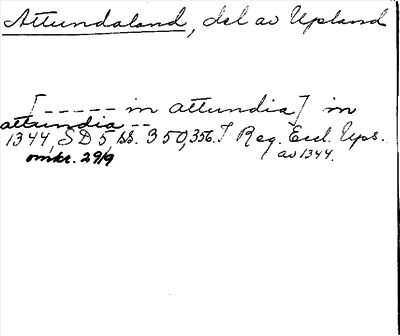 Attundaland, del av Upland
[----- in attundia] in
attundia --
1344, SD 5, ss. 350, 356. I Reg. Eccl. Ups.
omkr. 29/9 av 1344.